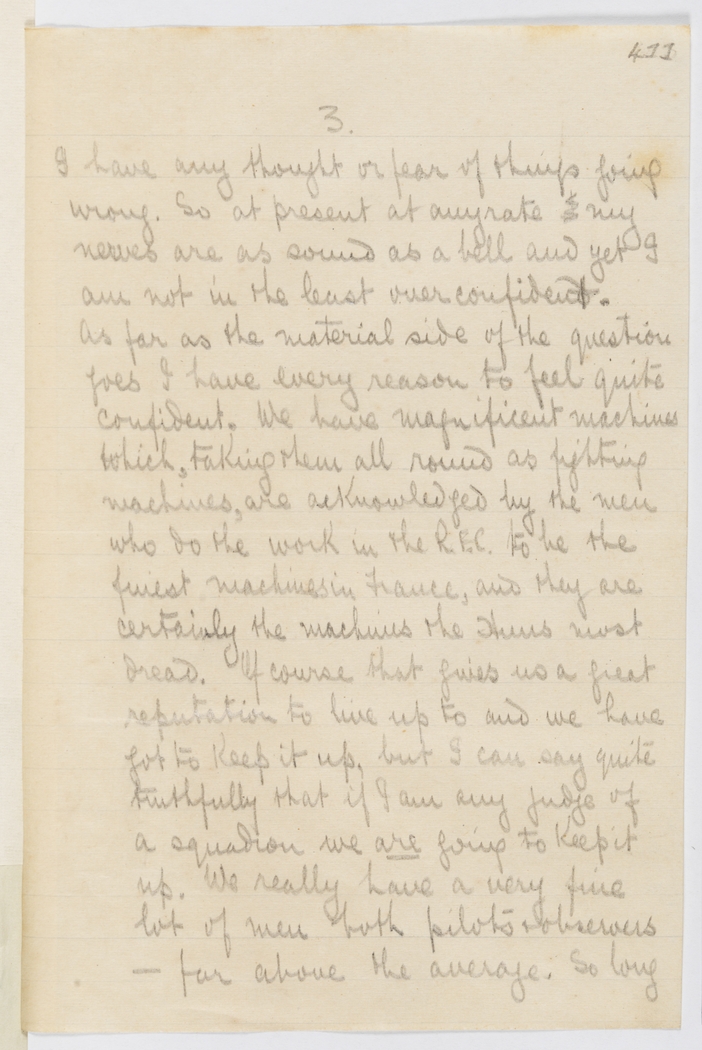 411
3.
I have any thought or fear of things going
wrong. So at present at anyrate & my
nerves are as sound as a bell and yet I
am not in the least over confident.
As far as the material side of the question
goes I have every reason to feel quite
confident. We have magnificent machines
which, taking them all round as fighting
machines, are acknowledged by the men
who do the work in the R.F.C. to be the
finest machines in France, and they are
certainly the machines the Huns most
dread. Of course that gives us a great
reputation to live up to and we have
got to keep it up, but I can say quite
truthfully that if I am any judge of
a squadron we are going to keep it
up. We really have a very fine
lot of men both pilots & observers
— far above the average. So long